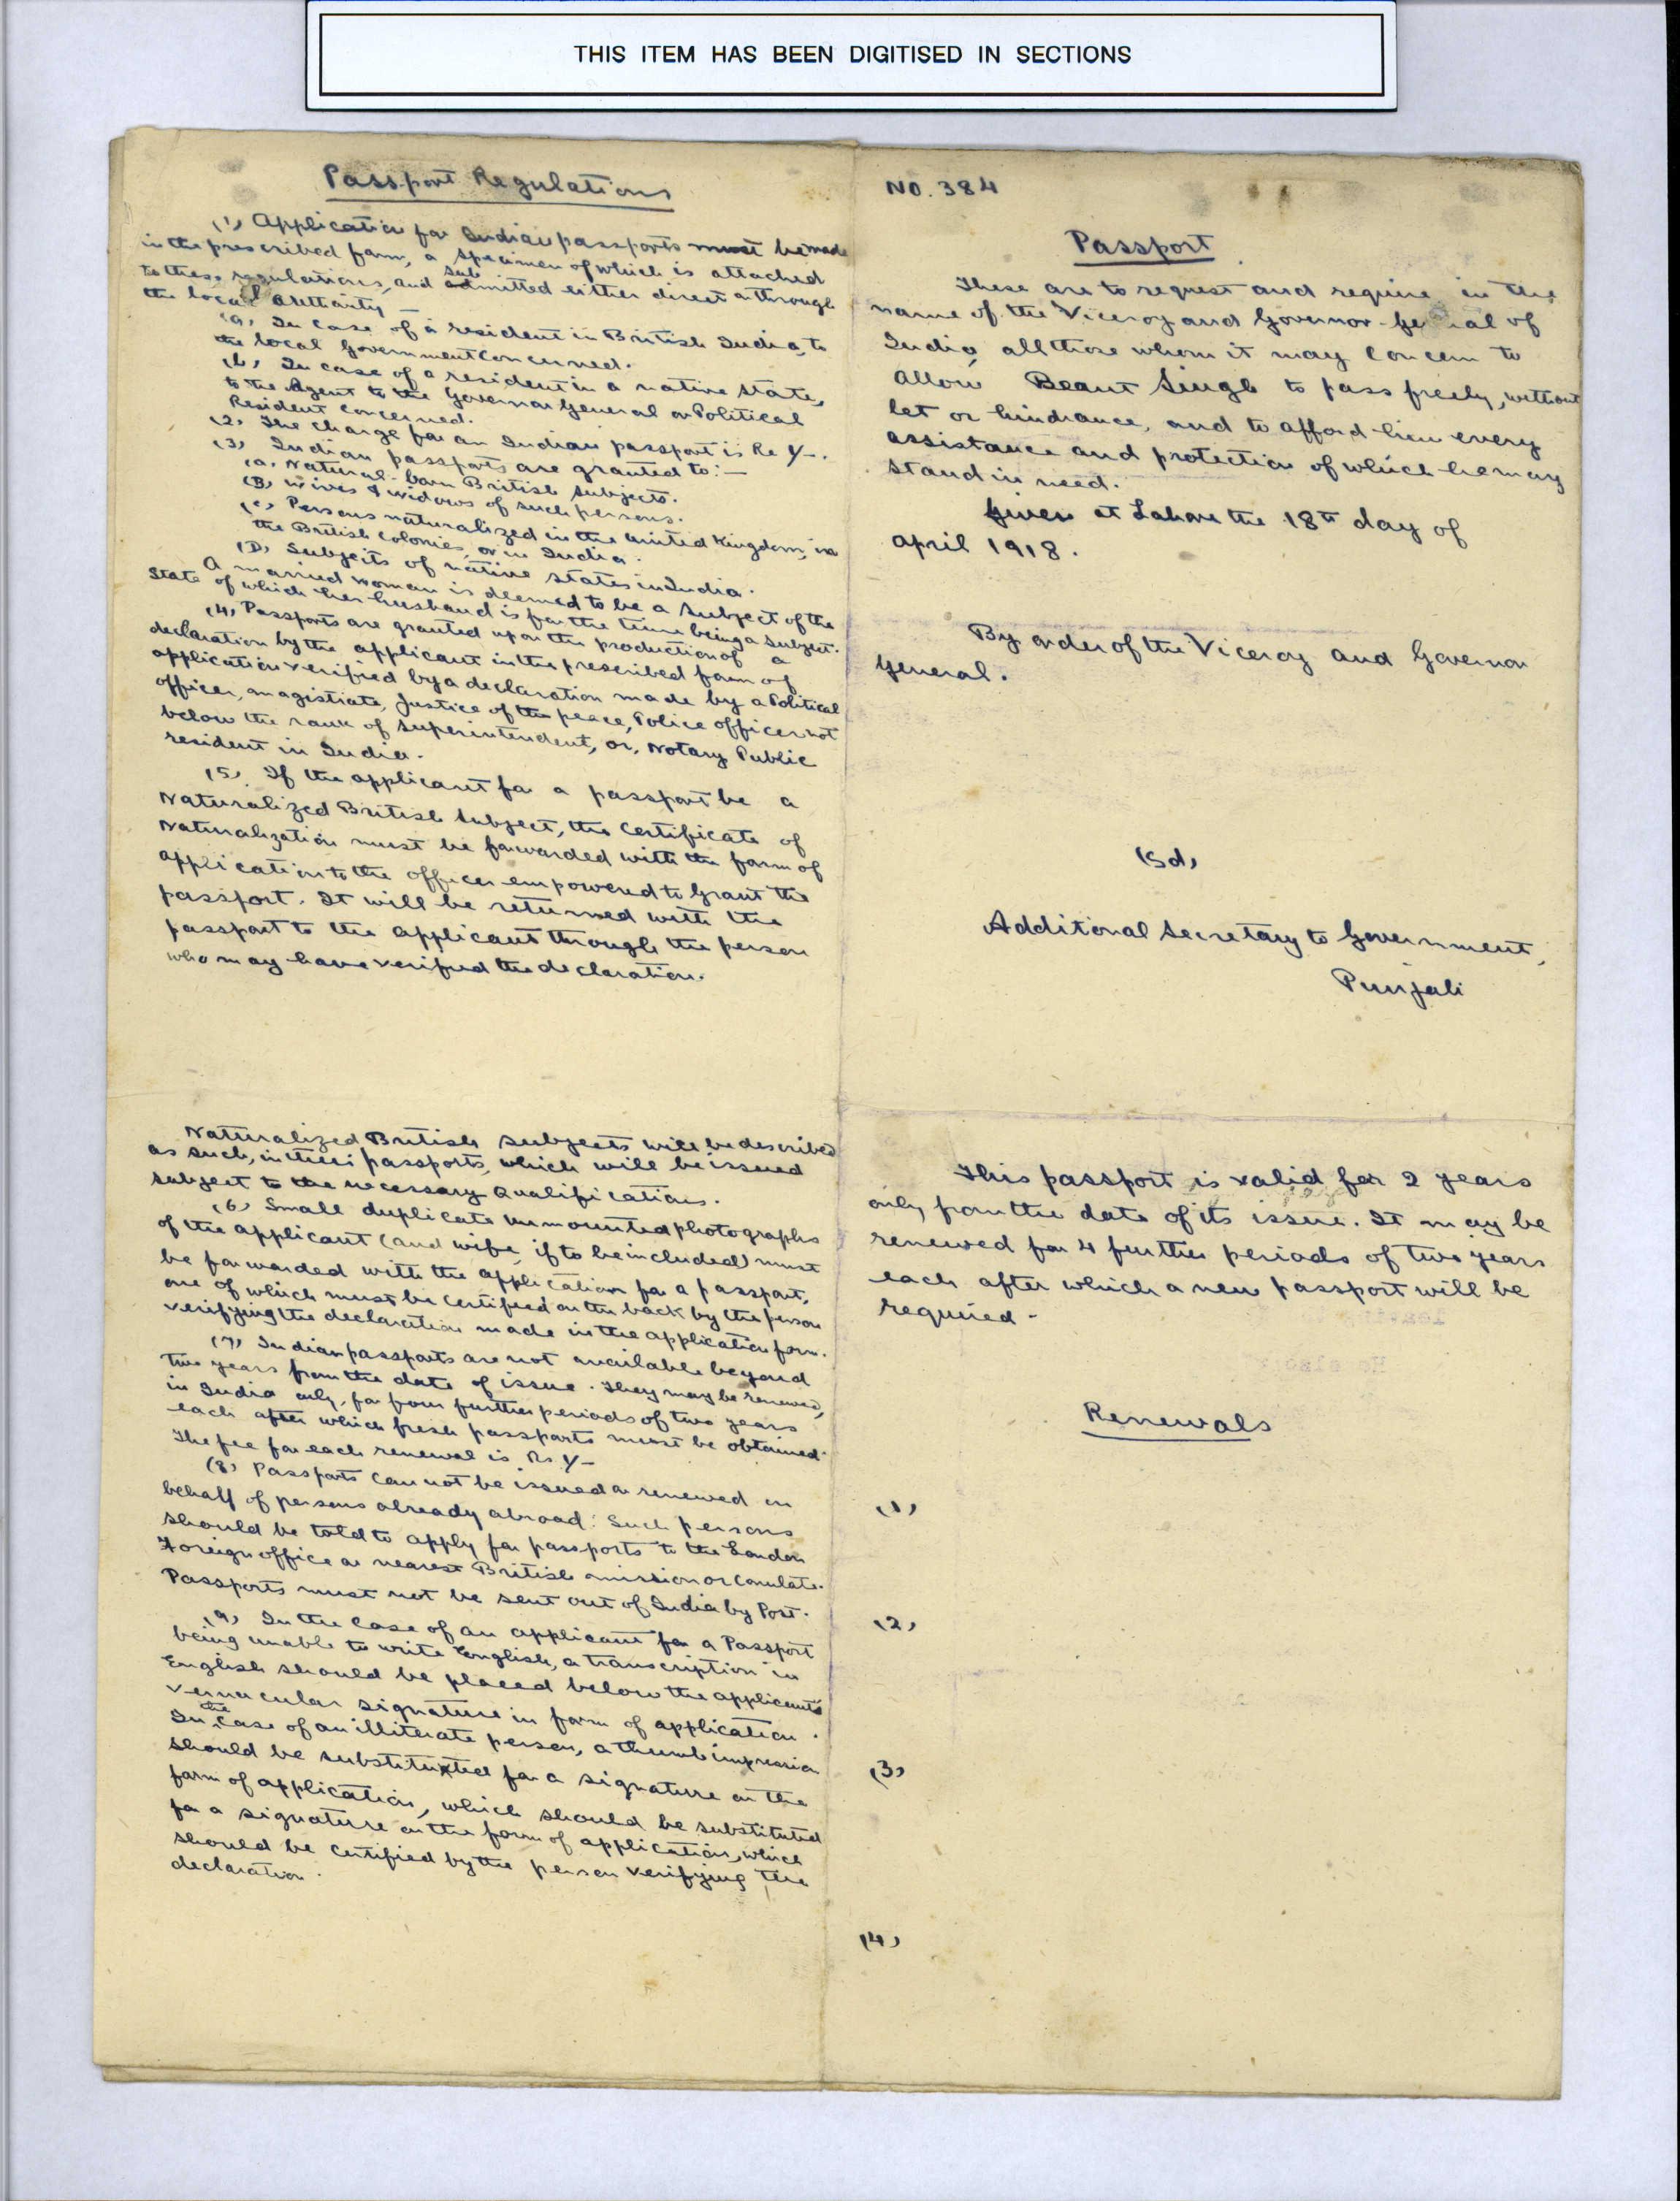 THIS ITEM HAS BEEN DIGITISED IN SECTIONS
Passport Regulations
(1) Application for Indian passports must be made
in the prescribed form, a specimen of which is attached
to these regulations, and submitted either direct or through
the local authority —
(a) In case of a resident in British India, to
the local Government concerned.
(b) In case of a resident in a native state,
to the Agent to the Governor General or Political
Resident concerned.
(2) The charge for an Indian passport is Re 1/-.
(3) Indian passports are granted to:—
(a. Natural-born British subjects.
(B) wives & widows of such persons.
(c) Persons naturalized in the United Kingdom, in
the British Colonies, or in India.
(D) Subjects of native states in India.
A married woman is deemed to be a subject of the
State of which her husband is for the time being a subject.
(4) Passports are granted upon the production of a
declaration by the applicant in the prescribed form of
application verified by a declaration made by a Political
officer, magistrate, Justice of the peace, Police officer not
below the rank of superintendent, or, Notary Public
resident in India.
(5) If the applicant for a passport be a
Naturalized British subject, the certificate of
Naturalization must be forwarded with the form of
application to the officer empowered to grant the
passport. It will be returned with the
passport to the applicant through the person
who may have verified the declaration.
Naturalized British subjects will be described
as such, in their passports, which will be issued
subject to the necessary qualifications.
(6) Small duplicate unmounted photographs
of the applicant (and wife, if to be included) must
be forwarded with the application for a passport,
one of which must be certified on the back by the person
verifying the declaration made in the application form.
(7) Indian passports are not available beyond
two years from the date of issue. They may be renewed,
in India only, for four further periods of two years
each after which fresh passports must be obtained.
The fee for each renewal is Rs 1/-
(8) Passports cannot be issued or renewed on
behalf of persons already abroad. Such persons
should be told to apply for passports to the London
Foreign office or nearest British mission or Consulate.
Passports must not be sent out of India by Post.
(9) In the case of an applicant for a Passport
being unable to write English, a transcription in
English should be placed below the applicants
vernacular signature in form of application.
In the case of an illiterate person, a thumb impression
should be substituted for a signature on the
form of application, which should be substituted
for a signature on the form of application, which
should be certified by the person verifying the
declaration.
NO. 384
Passport
These are to request and require in the
name of the Viceroy and Governor-Ge  al of
India all those whom it may concern to
allow Beant Singh to pass freely, without
let or hindrance, and to afford him every
assistance and protection of which he may
stand in need.
Given at Lahore the 18th day of
April 1918.
By order of the Viceroy and Governor
General.
(Sd)
Additional Secretary to Government,
Punjab
This passport is valid for 2 years
only from the date of its issue. It may be
renewed for 4 further periods of two years
each after which a new passport will be
required.
Renewals
(1)
(2)
(3)
(4)